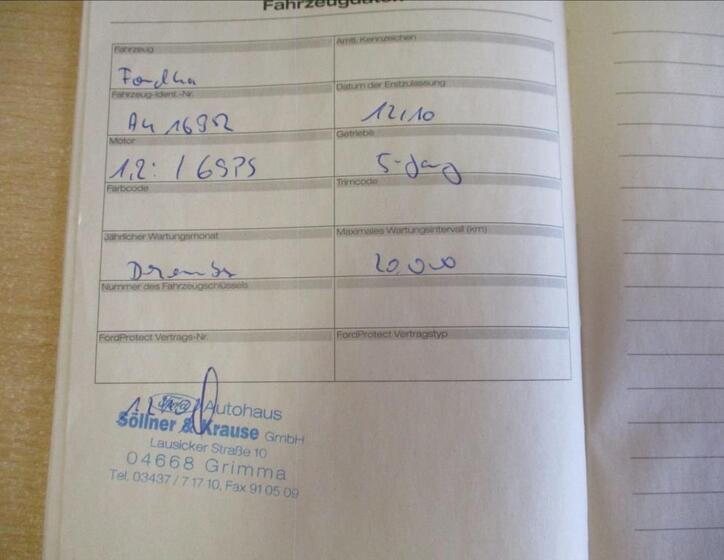 Fahrzeugdaten
Fahrzeug
Amtl. Kennzeichen
Ford Ka
Fahrzeug-Ident.-Nr.
Datum der Erstzulassung
12.10
Motor
Getriebe
1,2: / 69PS
5-Gang
Farbcode
Trimcode
Jährlicher Wartungsmonat
Maximales Wartungsintervall (km)
Dezember
20.000
Nummer des Fahrzeugschlüssels
FordProtect Vertrags-Nr.
FordProtect Vertragstyp
Autohaus
Söllner & Krause GmbH
Lausicker Straße 10
04668 Grimma
Tel. 03437 / 7 17 10, Fax 91 05 09